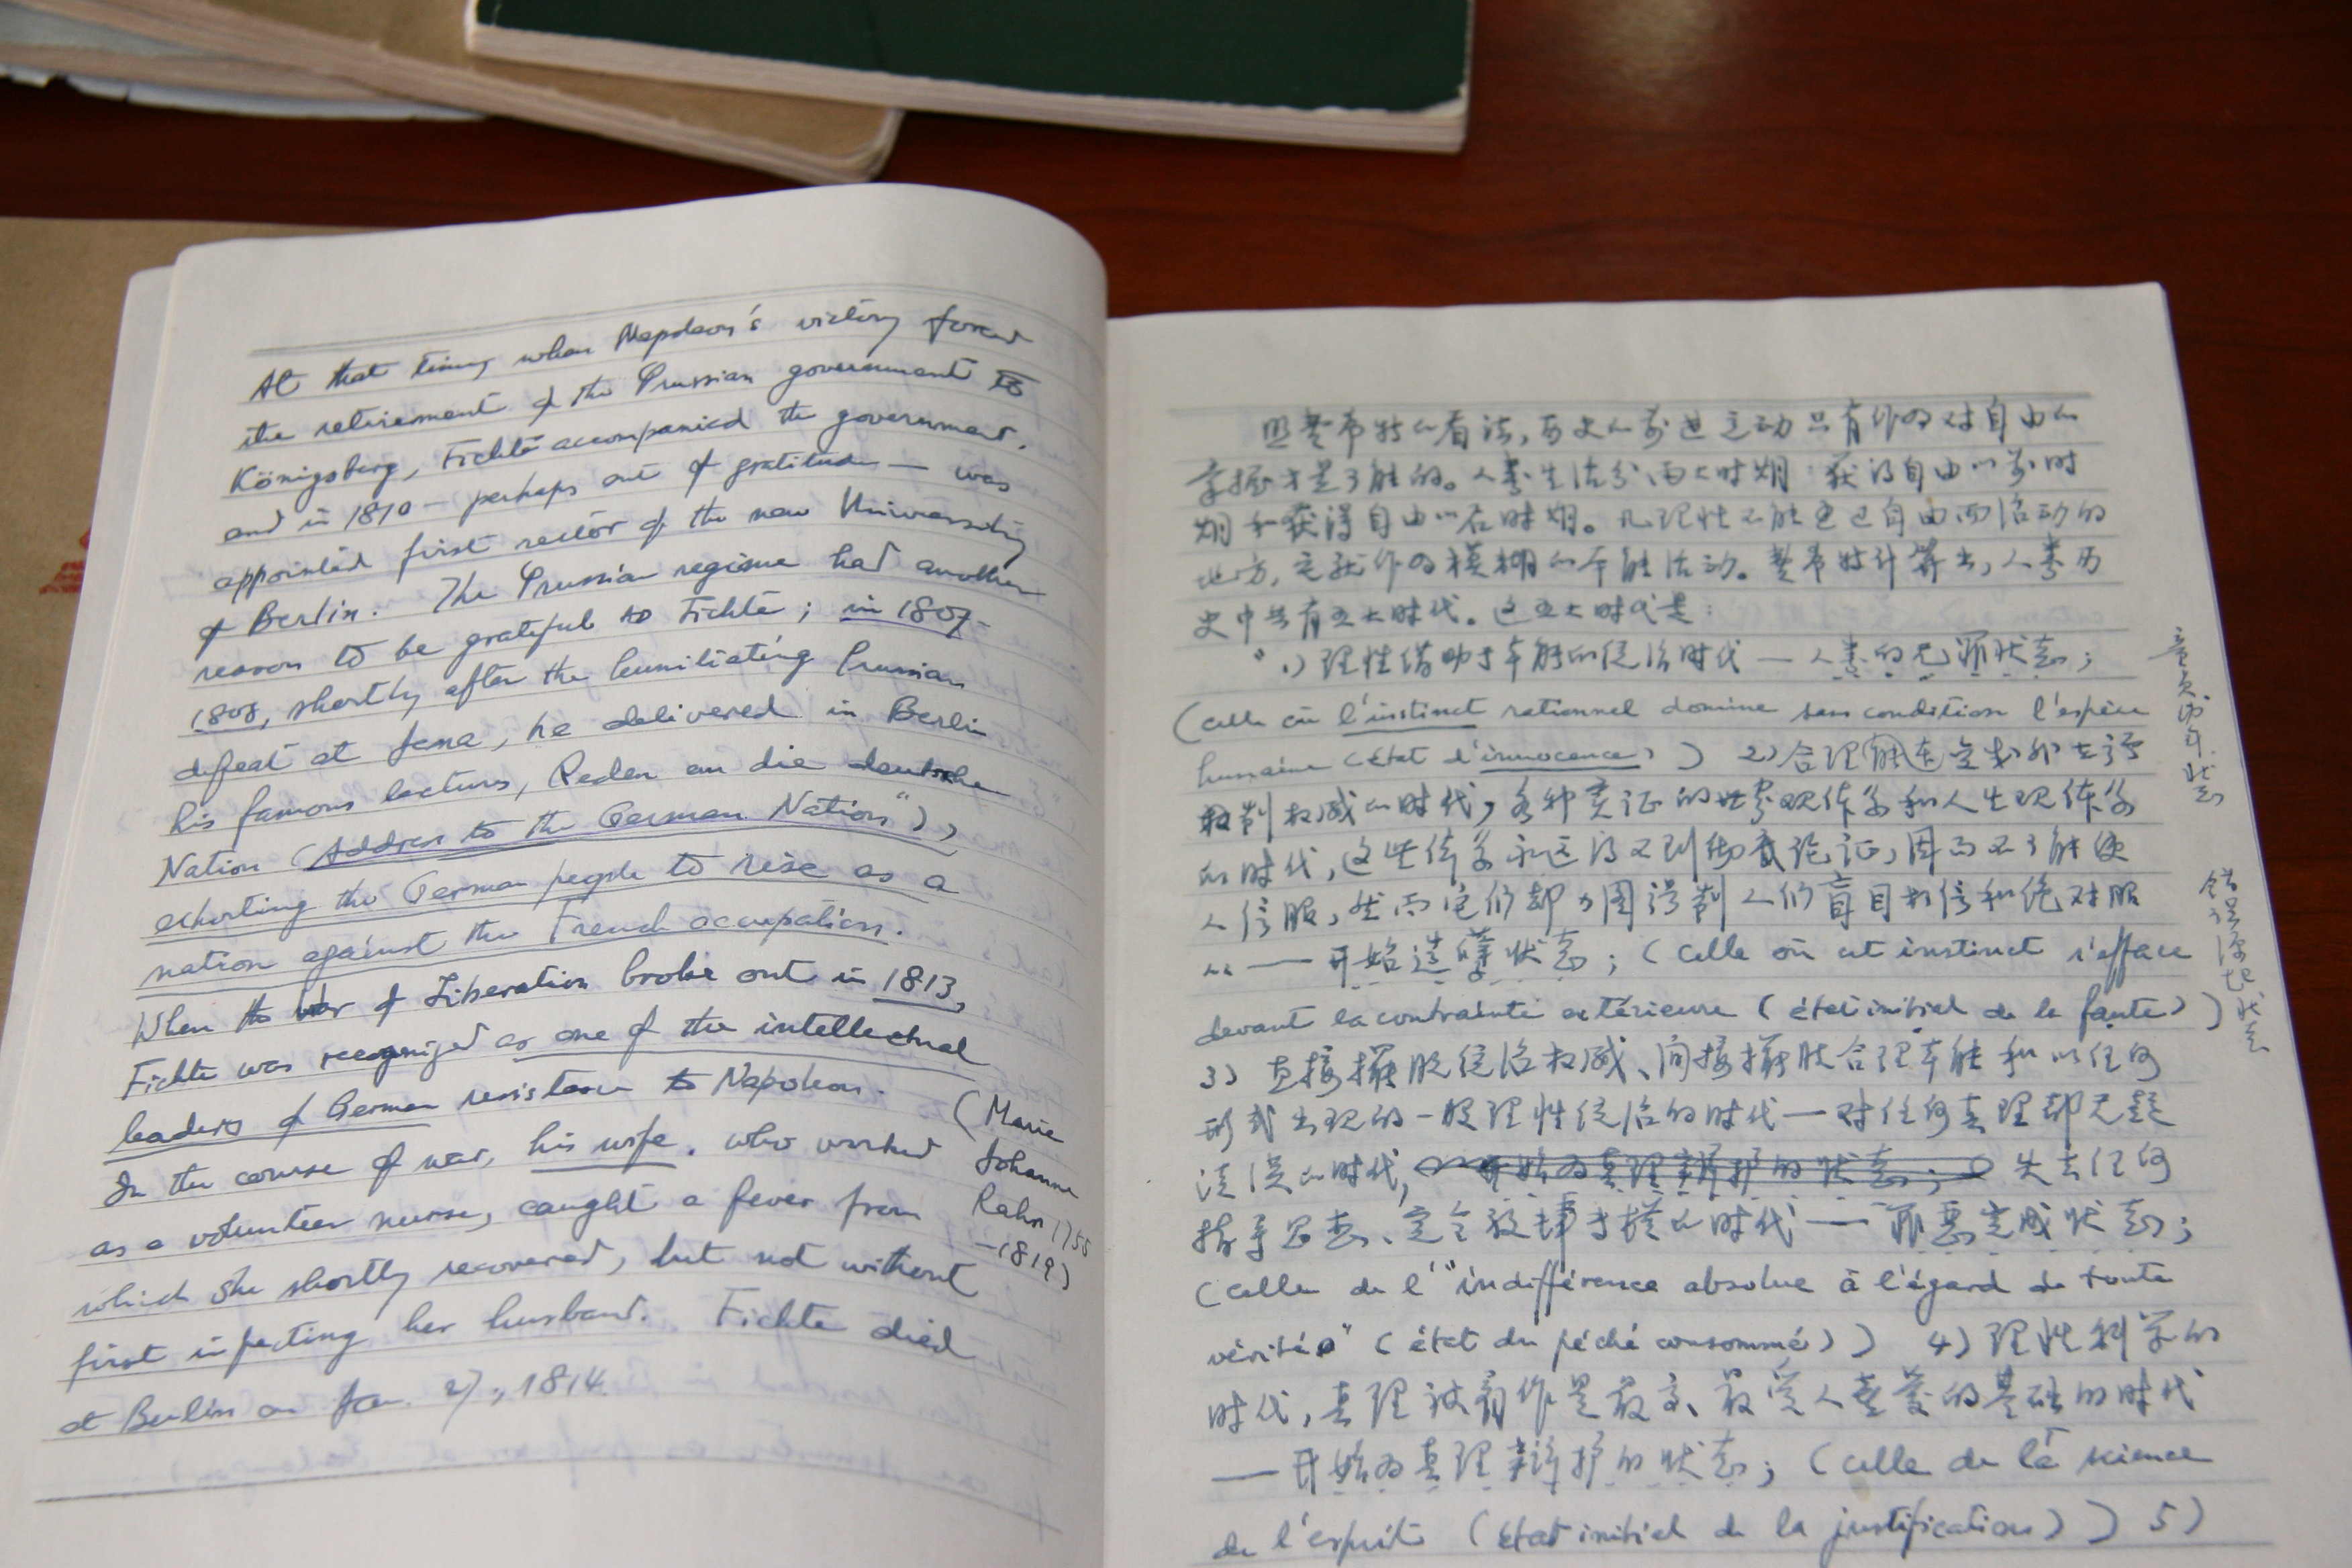 At that time, when Napoleon's victory forced
the retirement of the Prussian government to
Königsberg, Fichte accompanied the government.
and in 1810 — perhaps out of gratitude — was
appointed first rector of the new University
of Berlin. The Prussian regime had another
reason to be grateful to Fichte; in 1807-
1808, shortly after the humiliating Prussian
defeat at Jena, he delivered in Berlin
his famous lectures, Reden an die deutsche
Nation (Address to the German Nation"),
exhorting the German people to rise as a
nation against the French occupation.
When the War of Liberation broke out in 1813,
Fichte was recognized as one of the intellectual
leaders of German resistance to Napoleon.
In the course of war, his wife, who worked
(Marie
Johanna
Rahn 1755
–1819)
as a volunteer nurse, caught a fever from
which she shortly recovered, but not without
first infecting her husband. Fichte died
at Berlin on Jan. 27, 1814.
照费希特的看法,历史的前进运动只有作为对自由的
掌握才是可能的。人类生活分两大时期:获得自由以前时
期和获得自由以后时期。凡理性不能通过自由而活动的
地方,它就作为模糊的本能活动。费希特计算出,人类历
史中共有五大时代。这五大时代是:
"1)理性借助于本能的统治时代 — 人类的无罪状态;
(celle où l'instinct rationnel domine sans condition l'espèce
humaine (état d'innocence)) 2)合理本能变成外在强
制权威的时代,各种实证的世界观体系和人生观体系
的时代,这些体系永远得不到彻底论证,因而不可能使
人信服,然而它们却力图强制人们盲目相信和绝对服
从 — 开始造孽状态; (celle où cet instinct s'efface
devant la contrainte extérieure (état initial de la faute))
3) 直接摆脱统治权威、间接摆脱合理本能和以任何
形式出现的一般理性统治的时代 — 对任何真理都无疑
漠的时代, 开始为真理辩护的状态; 失去任何
指导思想、完全放肆的时代 — 罪恶完成状态;
(celle de l'"indifférence absolue à l'égard de toute
vérité" (état du péché consommé)) 4) 理性科学的
时代,真理被看作是最高、最受人喜爱的基础的时代
— 开始为真理辩护的状态; (celle de la science
de l'esprit (état initial de la justification)) 5)
状态
错误深
状态